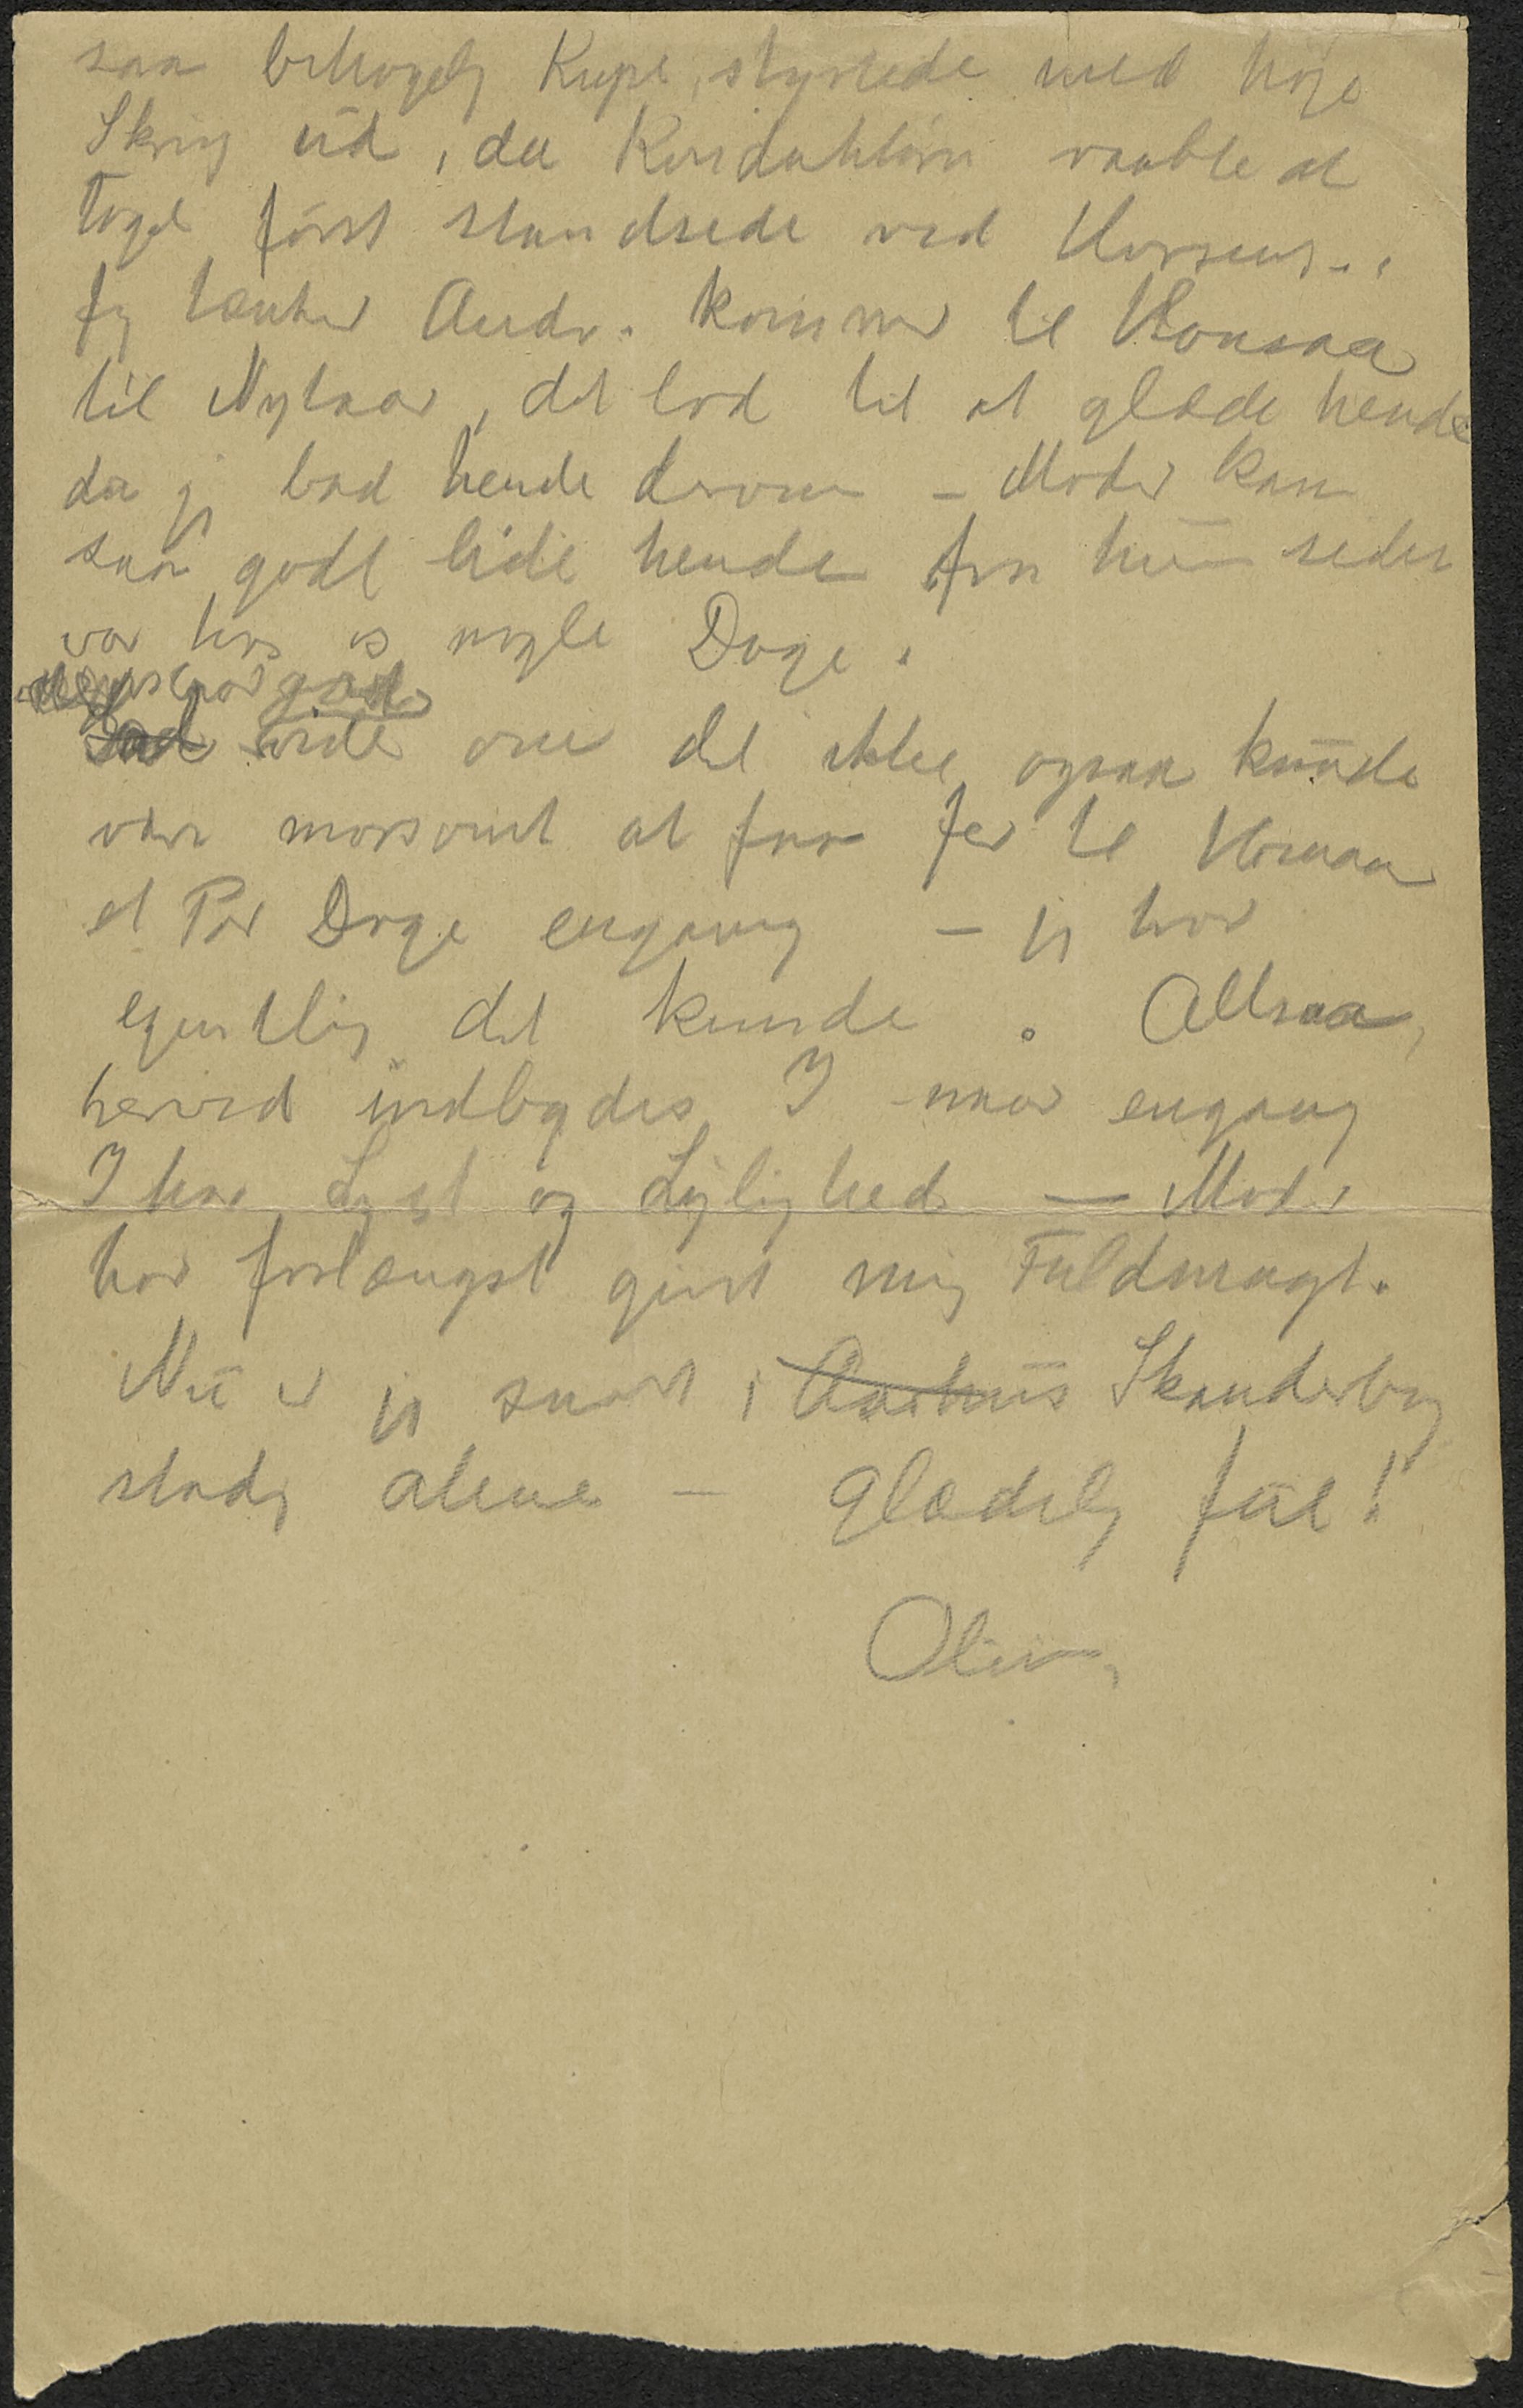 saa behagelig Kupe, styrtede med høje
Skrig ud, da Konduktøren raabte at
Toget først standsede ved Horsens..
Jeg tænker Andr. kommer til
til Nytaar, det lod til at glæde hende
da jeg bad hende derom – Moder kan
saa godt lide hende fra hun sidst
var hos os nogle Dage.
gad
vide om det ikke ogsaa kunde
være morsomt at faa Jer til
et Par Dage engang – jeg tror
egentlig det kunde. Altsaa,
herved indbydes I naar engang
I har Lyst og Lejlighed — Moder
har forlængst givet mig Fuldmagt.
Nu er jeg snart i Aarhus Skanderborg
stadig alene – Glædelig Jul!